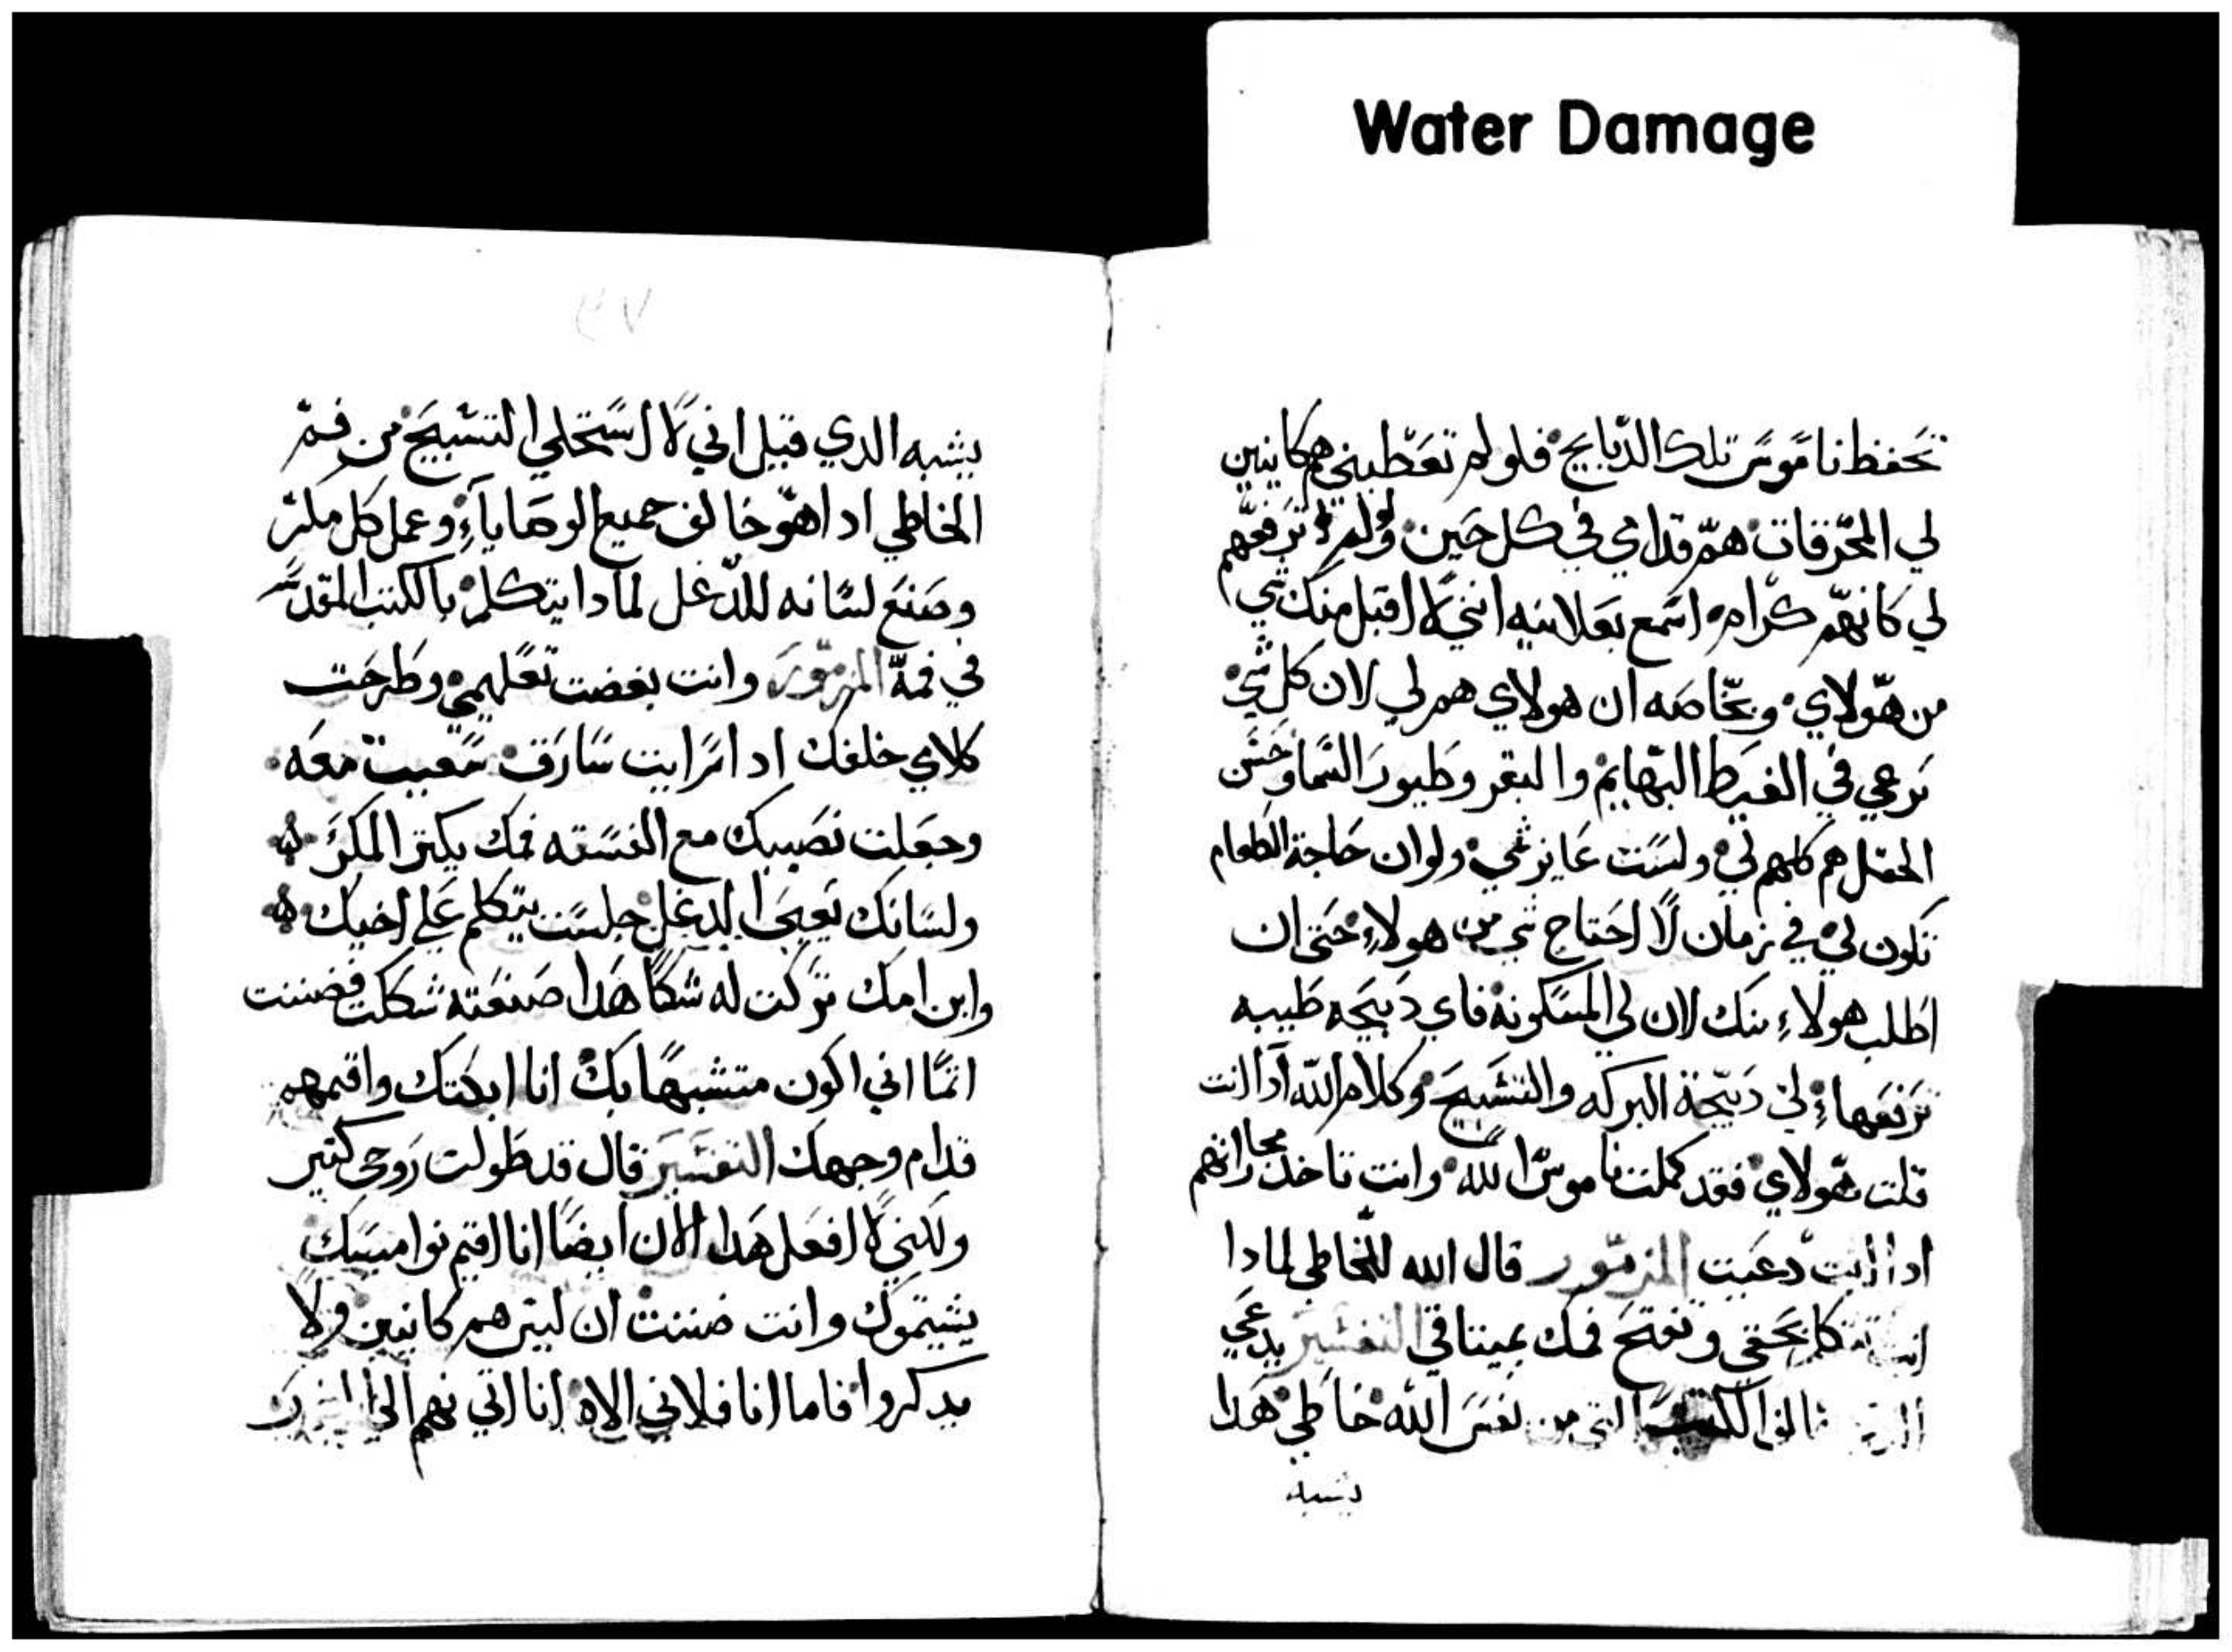 Water Damage
تحفظ ناموس تلك الدبايح فلو لم تعطيني هم كانين
لي المحرقات هم قدامي في كل حين ولو لم ترفعهم
لي كانهم كرام اسمع بعلانيه انني لا اقبل منك شي
من هولاي وبخاصه ان هولاي هم لي لان كل شي
يرعي في الغيط البهايم والبقر وطيور السما وحسن
الحقل هم كلهم لي ولست عايز شي ولو ان حاجة الطعام
تكون لي في زمان لا احتاج شي من هولاء حتى ان
اطلب هولاء منك لان لي المسكونة فاي دبيحه طيبه
ترفعها لي دبيحة البركه والتسبيح وكلام الله ادا انت
قلت هولاي فقد كملت ناموس الله وانت تاخد مجازاتهم
ادا انت دعيت المزمور قال الله للخاطي لمادا
انت تتكلم بحقي وتفتح فمك بميتاقي التفسير يدعي
الكتب التي من نفس الله خاطي هدا
يشبه
٧٩
يشبه الدي قيل اني لا استحلي التسبيح من فم
الخاطي ادا هو خالف جميع الوصاياء وعمل كل مكر
وصنع لسانه للدغل لمادا يتكلم بالكتب المقدسه
في فمه المزمور وانت بغضت تعليمي وطرحت
كلامي خلفك ادا رايت سارق سعيت معه
وجعلت نصيبك مع الفسقه فمك يكتر المكر
ولسانك يعبى الدغل جلست تتكلم علي اخيك
وابن امك تركت له شكا هدا صنعته شكلت فضننت
اتما اني اكون متشبها بك انا ابكتك واقمهم
قدام وجهك التفسير قال قد طولت روحي كتير
ولكني لا افعل هدا الان ايضا انا اقيم نواميسك
يشتموك وانت ضننت ان ليس هم كانين ولا
يدكروا فاما انا فلاني الاه انا اتي بهم الي